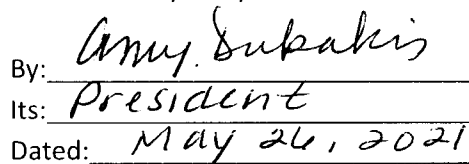 By: Amy Dukakis
Its: President
Dated: May 26, 2021